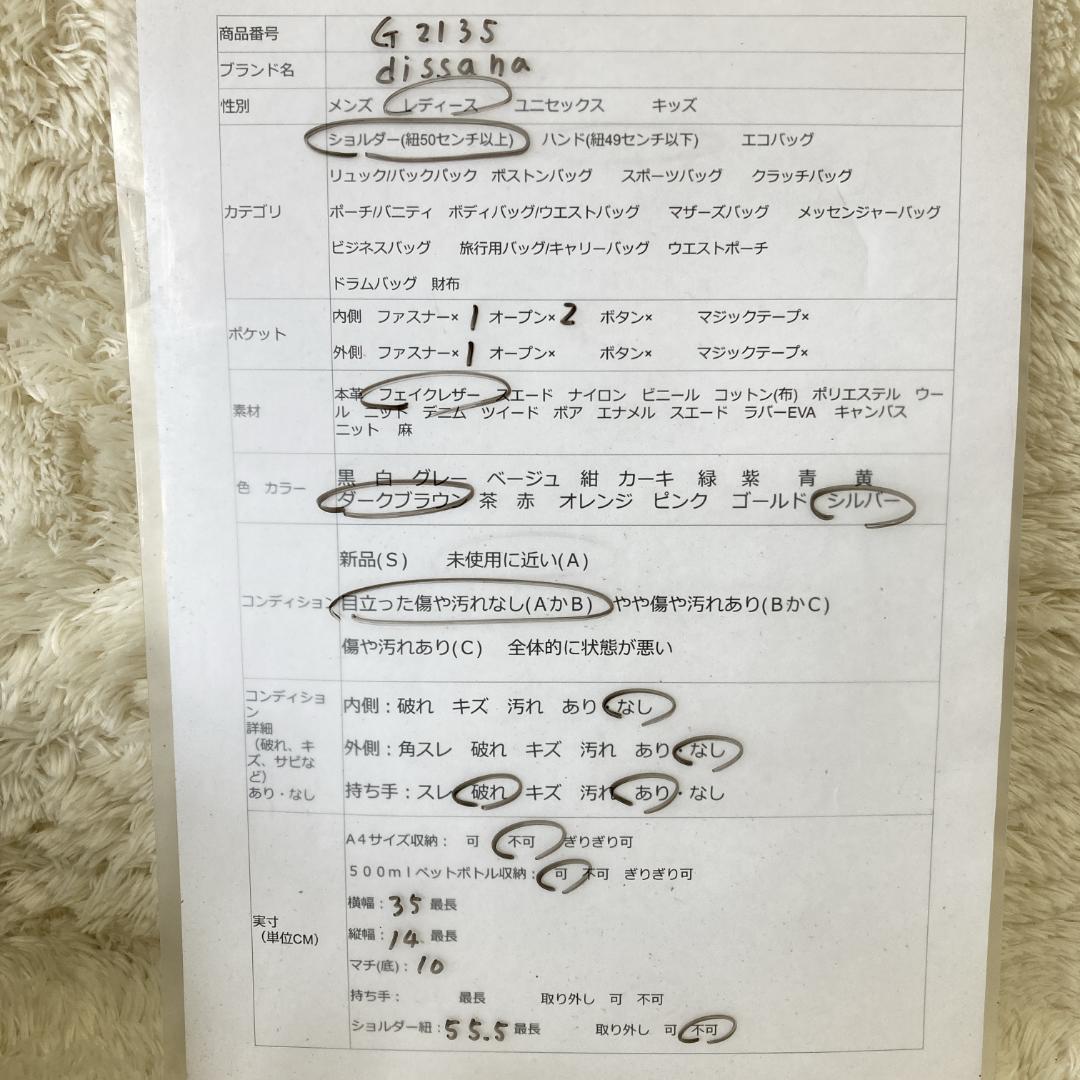 商品番号 G2135
ブランド名 dissana
性別 メンズ レディース ユニセックス キッズ
ショルダー(紐50センチ以上) ハンド(紐49センチ以下) エコバッグ
リュック/バックパック ボストンバッグ スポーツバッグ クラッチバッグ
カテゴリ ポーチ/バニティ ボディバッグ/ウエストバッグ マザーズバッグ メッセンジャーバッグ
ビジネスバッグ 旅行用バッグ/キャリーバッグ ウエストポーチ
ドラムバッグ 財布
ポケット
内側 ファスナー× 1 オープン× 2 ボタン× マジックテープ×
外側 ファスナー× 1 オープン× ボタン× マジックテープ×
素材
本革 フェイクレザー スエード ナイロン ビニール コットン(布) ポリエステル ウー
ル ニット デニム ツイード ボア エナメル スエード ラバーEVA キャンバス
ニット 麻
色 カラー
黒 白 グレー ベージュ 紺 カーキ 緑 紫 青 黄
ダークブラウン 茶 赤 オレンジ ピンク ゴールド シルバー
新品(S) 未使用に近い(A)
コンディション 目立った傷や汚れなし(AかB) やや傷や汚れあり(BかC)
傷や汚れあり(C) 全体的に状態が悪い
コンディショ
ン
詳細
(破れ、キ
ズ、サビな
ど)
あり・なし
内側：破れ キズ 汚れ あり・なし
外側：角スレ 破れ キズ 汚れ あり・なし
持ち手：スレ 破れ キズ 汚れ あり・なし
実寸
(単位CM)
A4サイズ収納： 可 不可 ぎりぎり可
500mlペットボトル収納： 可 不可 ぎりぎり可
横幅：35 最長
縦幅：14 最長
マチ(底)：10
持ち手： 最長 取り外し 可 不可
ショルダー紐：55.5 最長 取り外し 可 不可